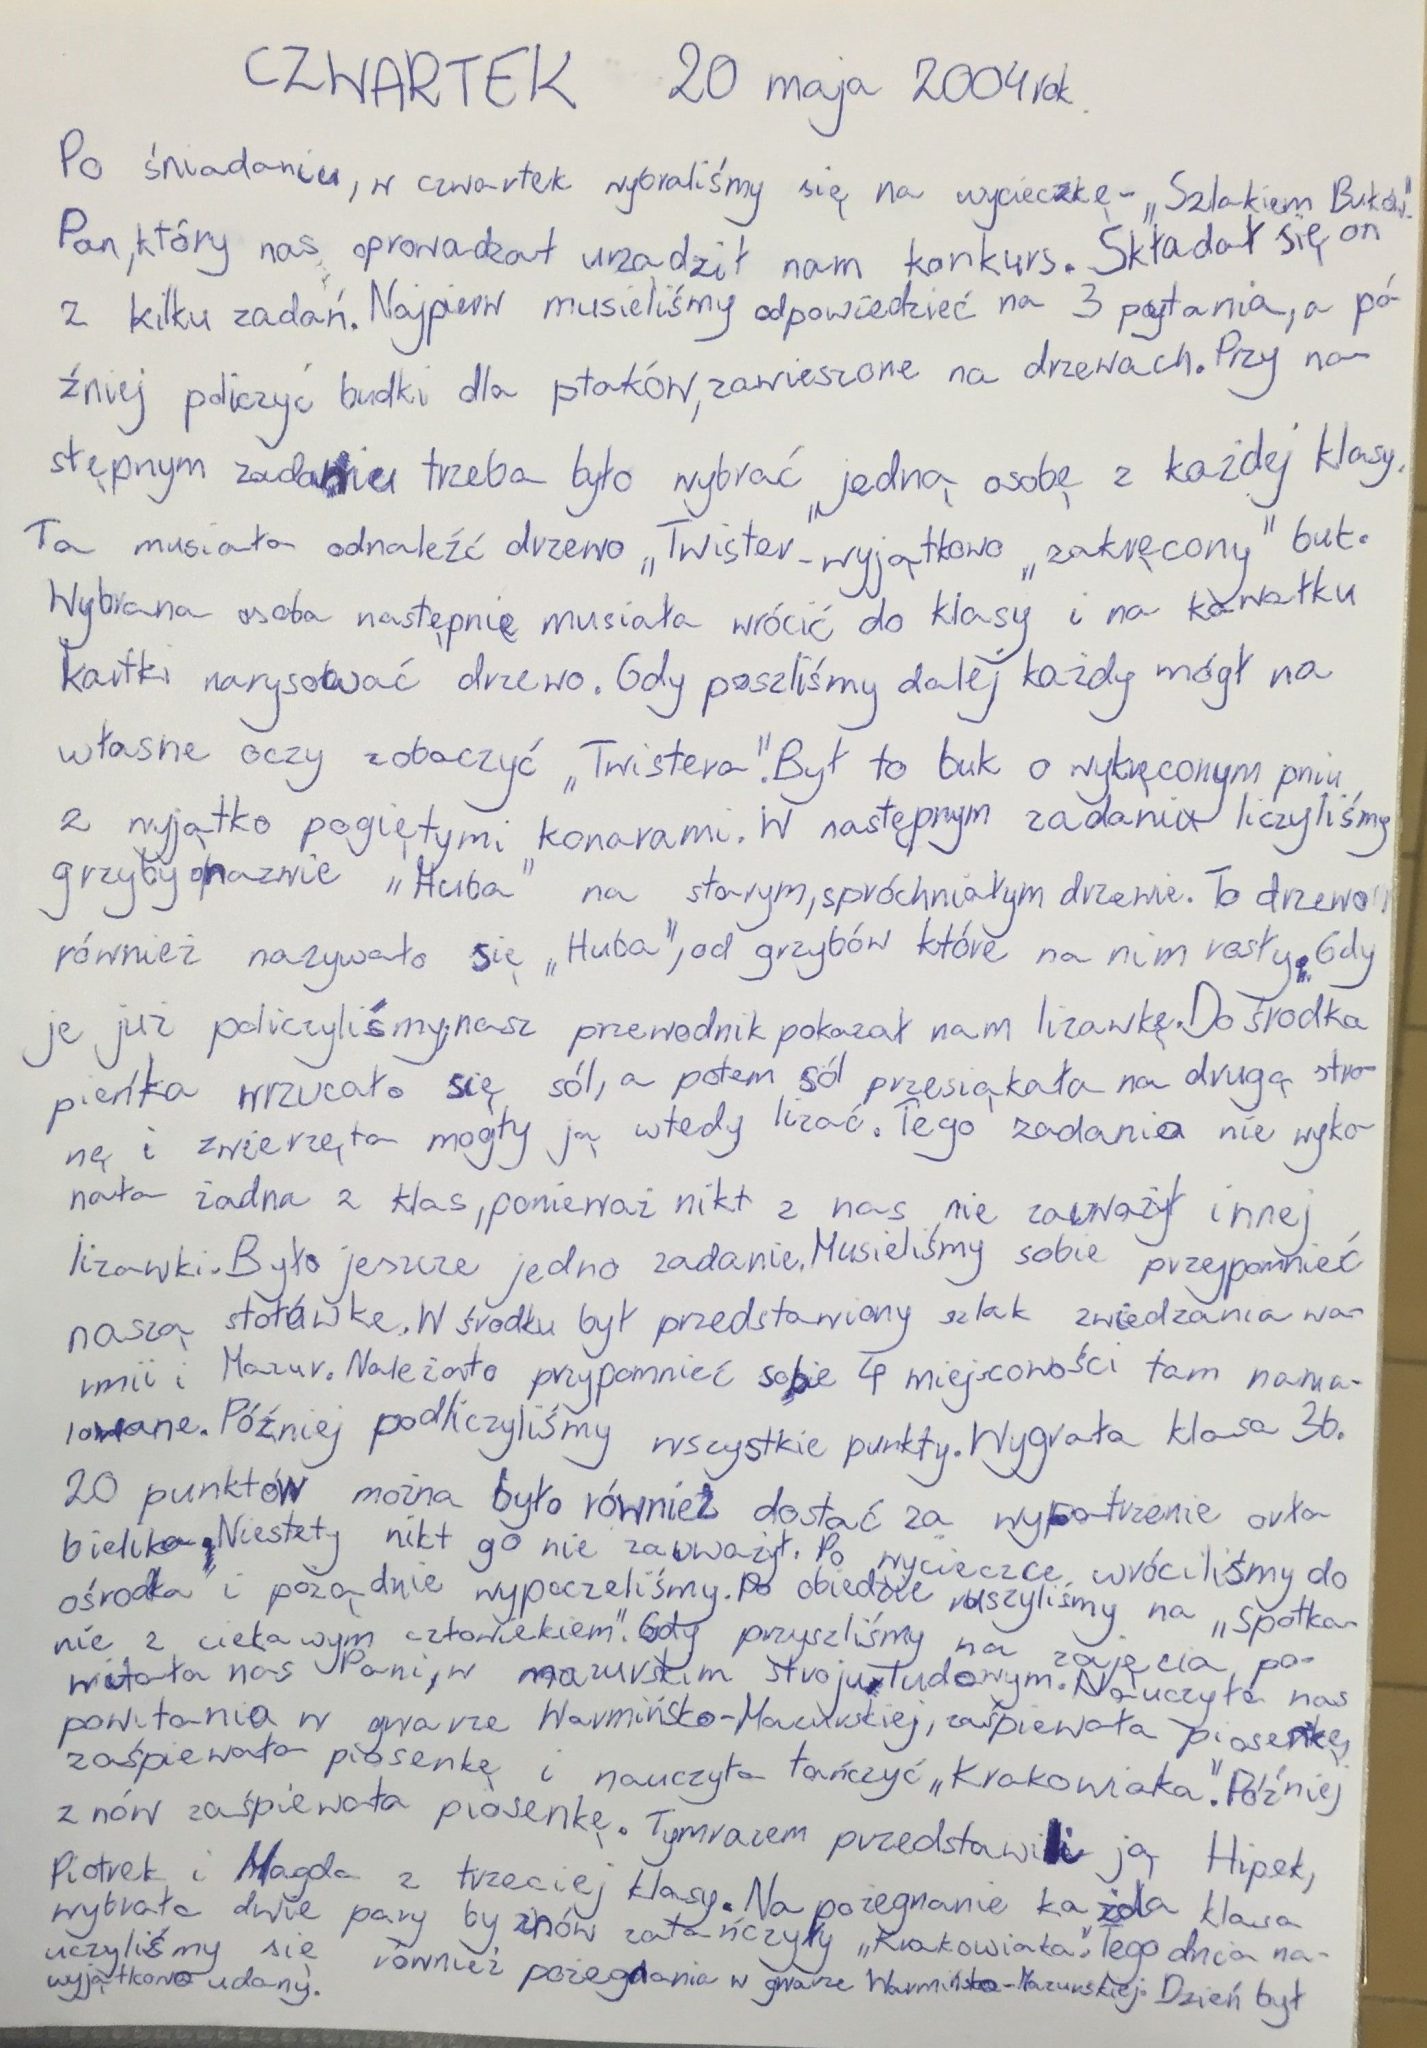 CZWARTEK 20 maja 2004 rok.
Po śniadaniu, w czwartek wybraliśmy się na wycieczkę - „Szlakiem Buków".
Pan, który nas oprowadzał urządził nam konkurs. Składał się on
z kilku zadań. Najpierw musieliśmy odpowiedzieć na 3 pytania, a pó-
źniej policzyć budki dla ptaków, zawieszone na drzewach. Przy na-
stępnym zadaniu trzeba było wybrać jedną osobę z każdej klasy.
Ta musiała odnaleźć drzewo „Twister" - wyjątkowo „zakręcony" buk.
Wybrana osoba następnie musiała wrócić do klasy i na kawałku
kartki narysować drzewo. Gdy poszliśmy dalej każdy mógł na
własne oczy zobaczyć „Twistera". Był to buk o wykręconym pniu
z wyjątko pogiętymi konarami. W następnym zadaniu liczyliśmy
grzyby o nazwie „Huba" na starym, spróchniałym drzewie. To drzewo
również nazywało się „Huba", od grzybów które na nim rosły. Gdy
je już policzyliśmy, nasz przewodnik pokazał nam lizawkę. Do środka
pieńka wrzucało się sól, a potem sól przesiąkała na drugą stro-
nę i zwierzęta mogły ją wtedy lizać. Tego zadania nie wyko-
nała żadna z klas, ponieważ nikt z nas nie zauważył innej
lizawki. Było jeszcze jedno zadanie. Musieliśmy sobie przypomnieć
naszą stołówkę. W środku był przedstawiony szlak zwiedzania wa-
rmii i Mazur. Należało przypomnieć sobie 4 miejscowości tam nama-
lowane. Później podliczyliśmy wszystkie punkty. Wygrała klasa 3b.
20 punktów można było również dostać za wypatrzenie orła
bielika. Niestety nikt go nie zauważył. Po wycieczce wróciliśmy do
ośrodka i pożądnie wypoczeliśmy. Po obiedzie ruszyliśmy na „Spotka-
nie z ciekawym człowiekiem". Gdy przyszliśmy na zajęcia, po-
witała nas Pani, w mazurskim stroju ludowym. Nauczyła nas
powitania w gwarze Warmińsko-Mazurskiej, zaśpiewała piosenkę,
zaśpiewała piosenkę i nauczyła tańczyć „Krakowiaka". Później
znów zaśpiewała piosenkę. Tymrazem przedstawili ją Hipek,
Piotrek i Magda z trzeciej klasy. Na pożegnanie każda klasa
wybrała dwie pary by znów zatańczyły „Krakowiaka". Tego dnia na-
uczyliśmy się również pożegnania w gwarze Warmińsko-Mazurskiej. Dzień był
wyjątkowo udany.